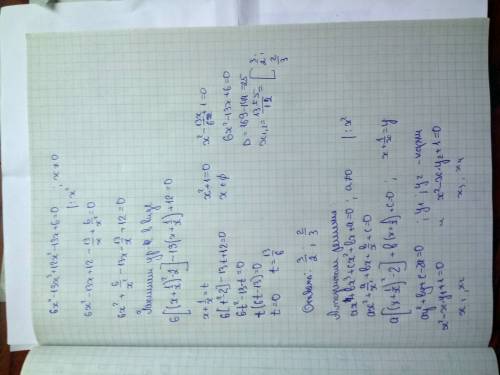 6x⁴-13x³+12x²-13x+6=0 ; x≠0
|: x²
6x²-13x+12-13/x+6/x²=0
6x²+6/x²-13x-13/x+12=0
в виде
6[(x+1/x)²-2]-13(x+1/x)+12=0
x+1/x=t
6[t²-2]-13t+12=0
6t²-13t=0
t(t-13)=0
t=0 t=13/6
x²+1=0
x∈∅
x²-13x/6+1=0
6x²-13x+6=0
D=169-144=25
x₁,₂=13±5/12=[3/2; 2/3
Ответ: 3/2 ; 2/3
Алгоритм решения
ax⁴+bx³+cx²+bx+a=0; a≠0 |: x²
ax²+a/x²+bx+b/x+c=0
a[(x+1/x)²-2]+b(x+1/x)+c=0; x+1/x=y
ay²+by+c-2a=0 ; y₁ ; y₂ - корни
x²-xy₁+1=0 и x²-xy₂+1=0
x₁, x₂ x₃, x₄